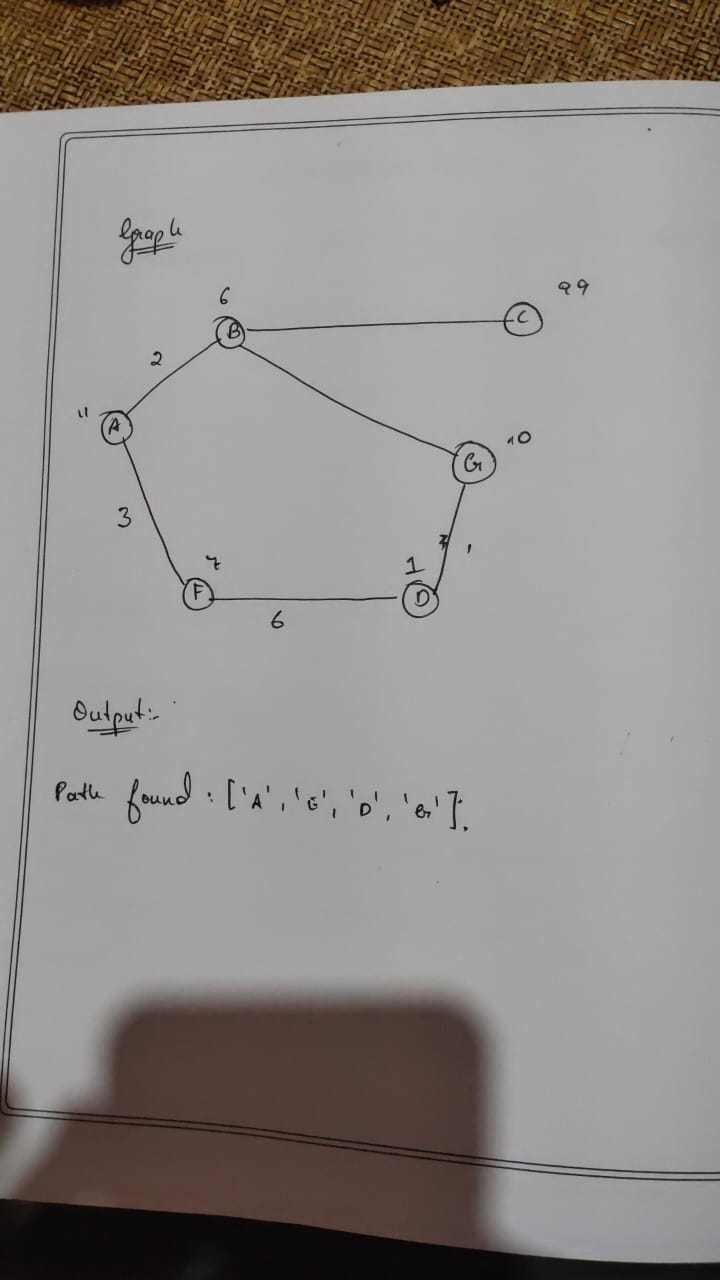 Graph
6
B
C
99
2
11
A
10
G
3
7
F
1
D
1
6
Output:-
Path found : ['A', 'E', 'D', 'G'].